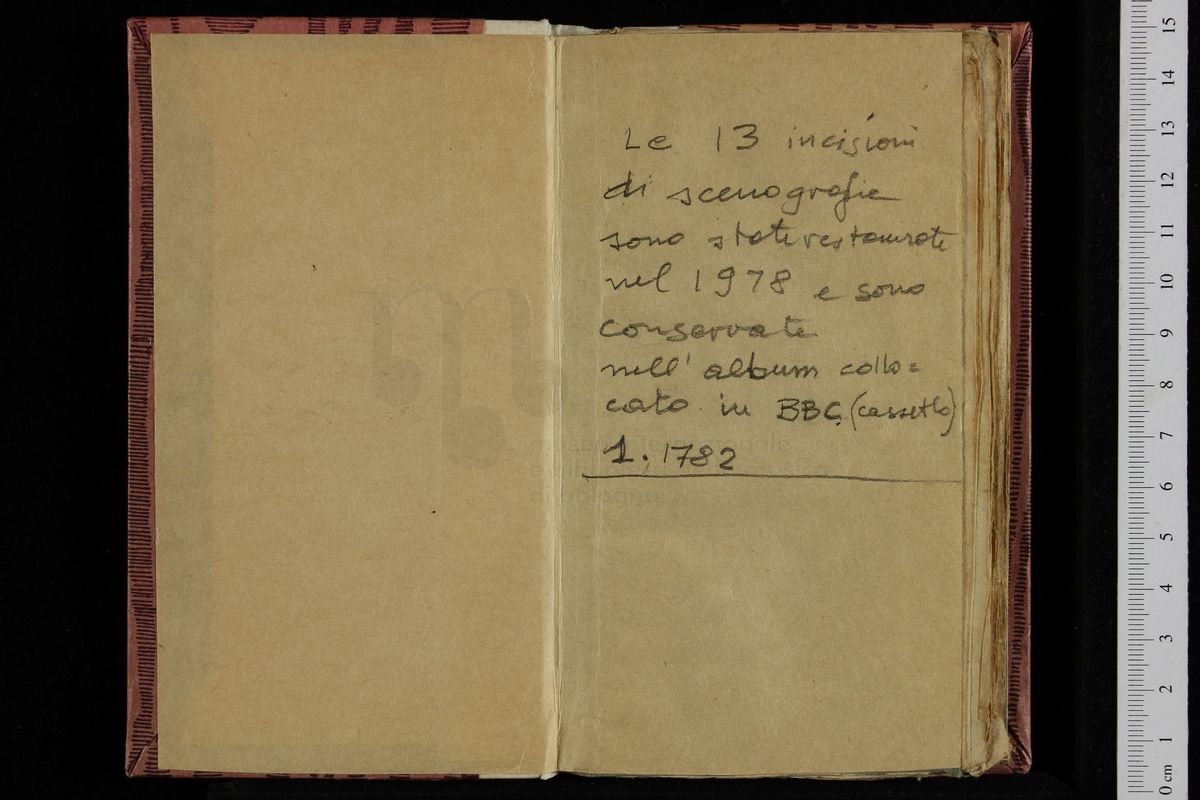 Le 13 incisioni
di scenografie
sono state restaurate
nel 1978 e sono
conservate
nell' album collo=
cato in BBC (cassetto)
1.1782